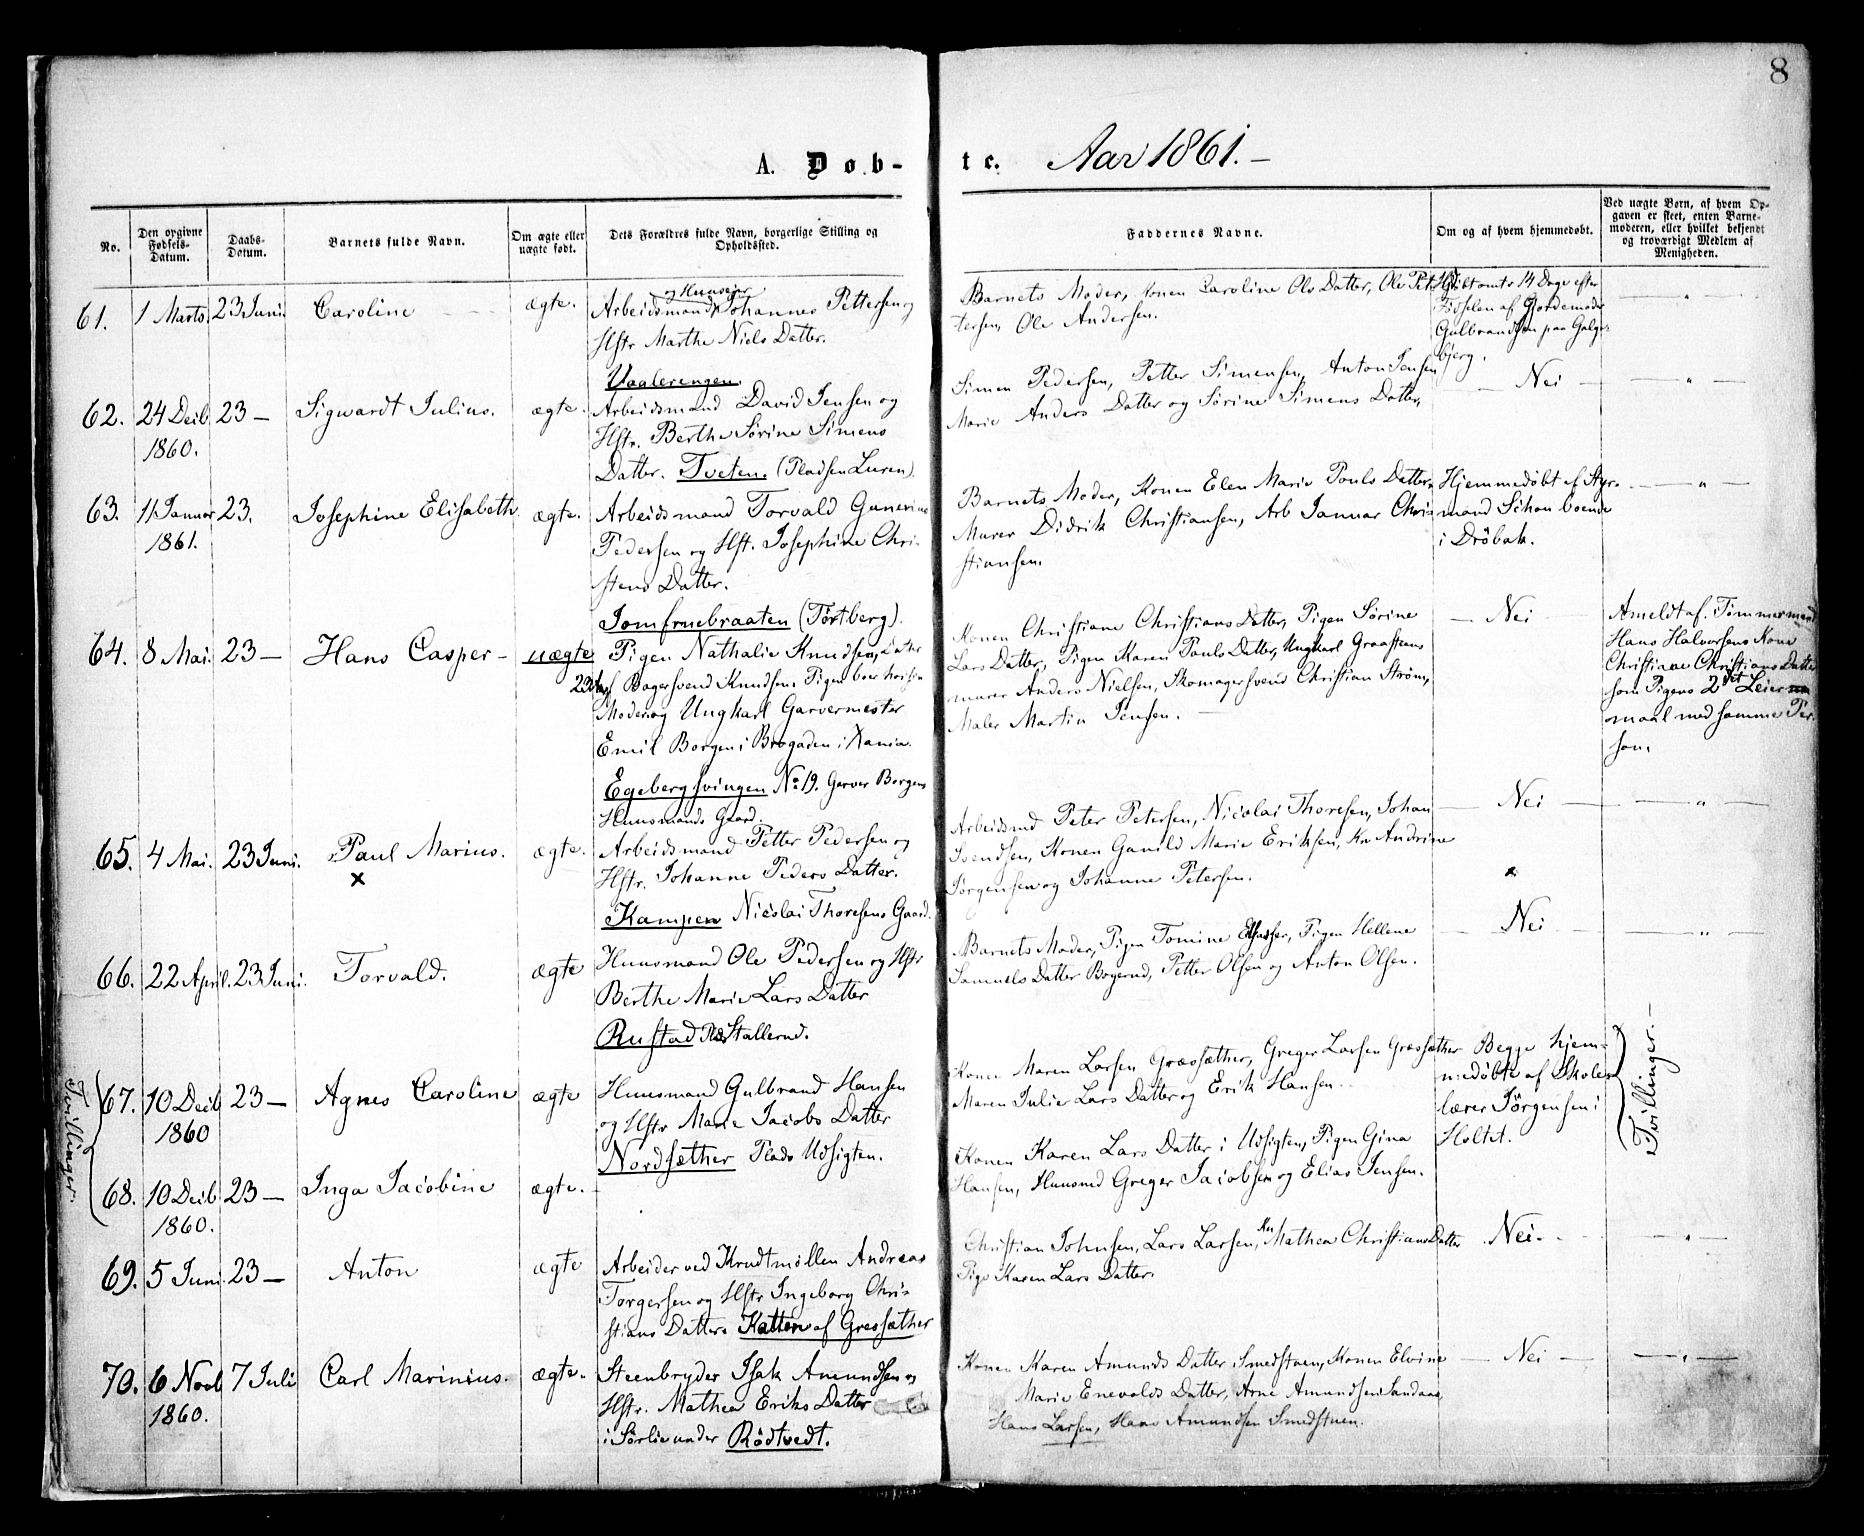 8
A. Døb-te. Aar 1861.
No.
Den opgivne Fødsels-Datum.
Daabs-Datum.
Barnets fulde Navn.
Om ægte eller uægte født.
Dets Forældres fulde Navn, borgerlige Stilling og Opholdssted.
Faddernes Navne.
Om og af hvem hjemmedøbt.
Ved uægte Børn, af hvem Opgaven er skeet, enten Barnemoderen, eller hvilket bekjendt og troværdigt Medlem af Menigheden.
61. 1 Marts. 23 Juni. Caroline ægte.
og Huuseier
Arbeidsmand Johannes Pettersen og
Hstr Marthe Niels Datter.
Vaalerengen.
Barnets Moder, Konen Caroline Ols Datter, Ole Pet-
tersen, Ole Andersen.
14 Dage efter
Fødselen af Gjordemoder
Gulbrandsen paa Galge-
bjerg.
62. 24 Decb. 1860. 23 — Sigwardt Julius. ægte.
Arbeidsmand David Jensen og
Hstr. Berthe Sørine Simens
Datter. Tveten. (Pladsen Luren).
Simen Pedersen, Petter Simensen, Anton Jensen
Marie Anders Datter og Sørine Simens Datter,
— Nei —
63. 11 Januar 1861. 23. Josephine Elisabeth. ægte.
Arbeidsmand Torvald Gunerius
Pedersen og Hst. Josephine Chri-
stens Datter.
Jomfruebraaten (Tørtberg).
Barnets Moder, Konen Elen Marie Pouls Datter,
Murer Didrik Christiansen, Arb Januar Chri-
stiansen.
Hjemmedøbt af Styr-
mand Schou boende
i Drøbak.
64. 8 Mai. 23 — Hans Casper — uægte
Pigen Nathalie Knudsen, Datter
af Bagersvend Knudsen. Pigen boer hos sin
Moder og Ungkarl Garvermester
Emil Borgen i Brogaden i Xania.
Egebergsvingen No 19. Garver Borgens
Huusmands Gaard.
Konen Christiane Christians Datter, Pigen Sørine
Lars Datter, Pigen Karen Pauls Datter, Ungkarl Graasteens
murer Anders Nielsen, Skomagersvend Christian Strøm,
Maler Martin Jensen. —
— Nei
Anmeldt af Tømmermand
Hans Halvorsens Kone
Christiane Christians Datter
som Pigens 2det Leier
maal med samme Per-
son.
65. 4 Mai. 23 Juni. Paul Marius. ægte.
x
Arbeidsmand Petter Pedersen og
Hstr. Johanne Peders Datter.
Kampen Nicolai Thoresens Gaard.
Arbeidsmd Peter Petersen, Nicolai Thoresen, Johan
Svendsen, Konen Gunild Marie Eriksen, Kn Andrine
Jørgensen og Johanne Petersen.
— Nei —
x
66. 22 April. 23 Juni. Torvald. ægte
Huusmand Ole Pedersen og Hstr
Berthe Marie Lars Datter
Rustad Plds Stallerud.
Barnets Moder, Pigen Tomine, Pigen Hellene
Samuels Datter Bogerud, Petter Olsen og Anton Olsen.
— Nei —
Tvillinger
67. 10 Decb 1860 23 — Agnes Caroline ægte
Huusmand Gulbrand Hansen
og Hstr Marie Jacobs Datter
Nordsæther Plads Udsigten.
Konen Maren Larsen Græssæther, Greger Larsen Græssæther
Maren Julie Lars Datter og Erik Hansen.
Begge hjem-
medøbte af Skole-
lærer Jørgensen i
Holtet.
Tvillinger. —
68. 10 Decb 1860. 23 — Inga Jacobine ægte.
Konen Karen Lars Datter i Udsigten, Pigen Gina
Hansen, Huusmd Greger Jacobsen og Elias Jensen.
69. 5 Juni 23 — Anton ægte
Arbeider ved Krudtmøllen Andreas
Torgersen og Hstr Ingeborg Chri-
stians Datter. Katten af Gressæther
Christian Johnsen, Lars Larsen, Kn Mathea Christians Datter
Pige Karen Lars Datter.
Nei.
70. 6 Novb 1860. 7 Juli Carl Marinius. ægte.
Steenbryder Isak Amundsen og
Hstr. Mathea Eriks Datter
i Sørlie under Rødtvedt.
Konen Karen Amunds Datter Smedstuen, Konen Elvine
Marie Enevalds Datter, Arne Amundsen Sandaas
Hans Larsen, Hans Amundsen Smedstuen.
— Nei —